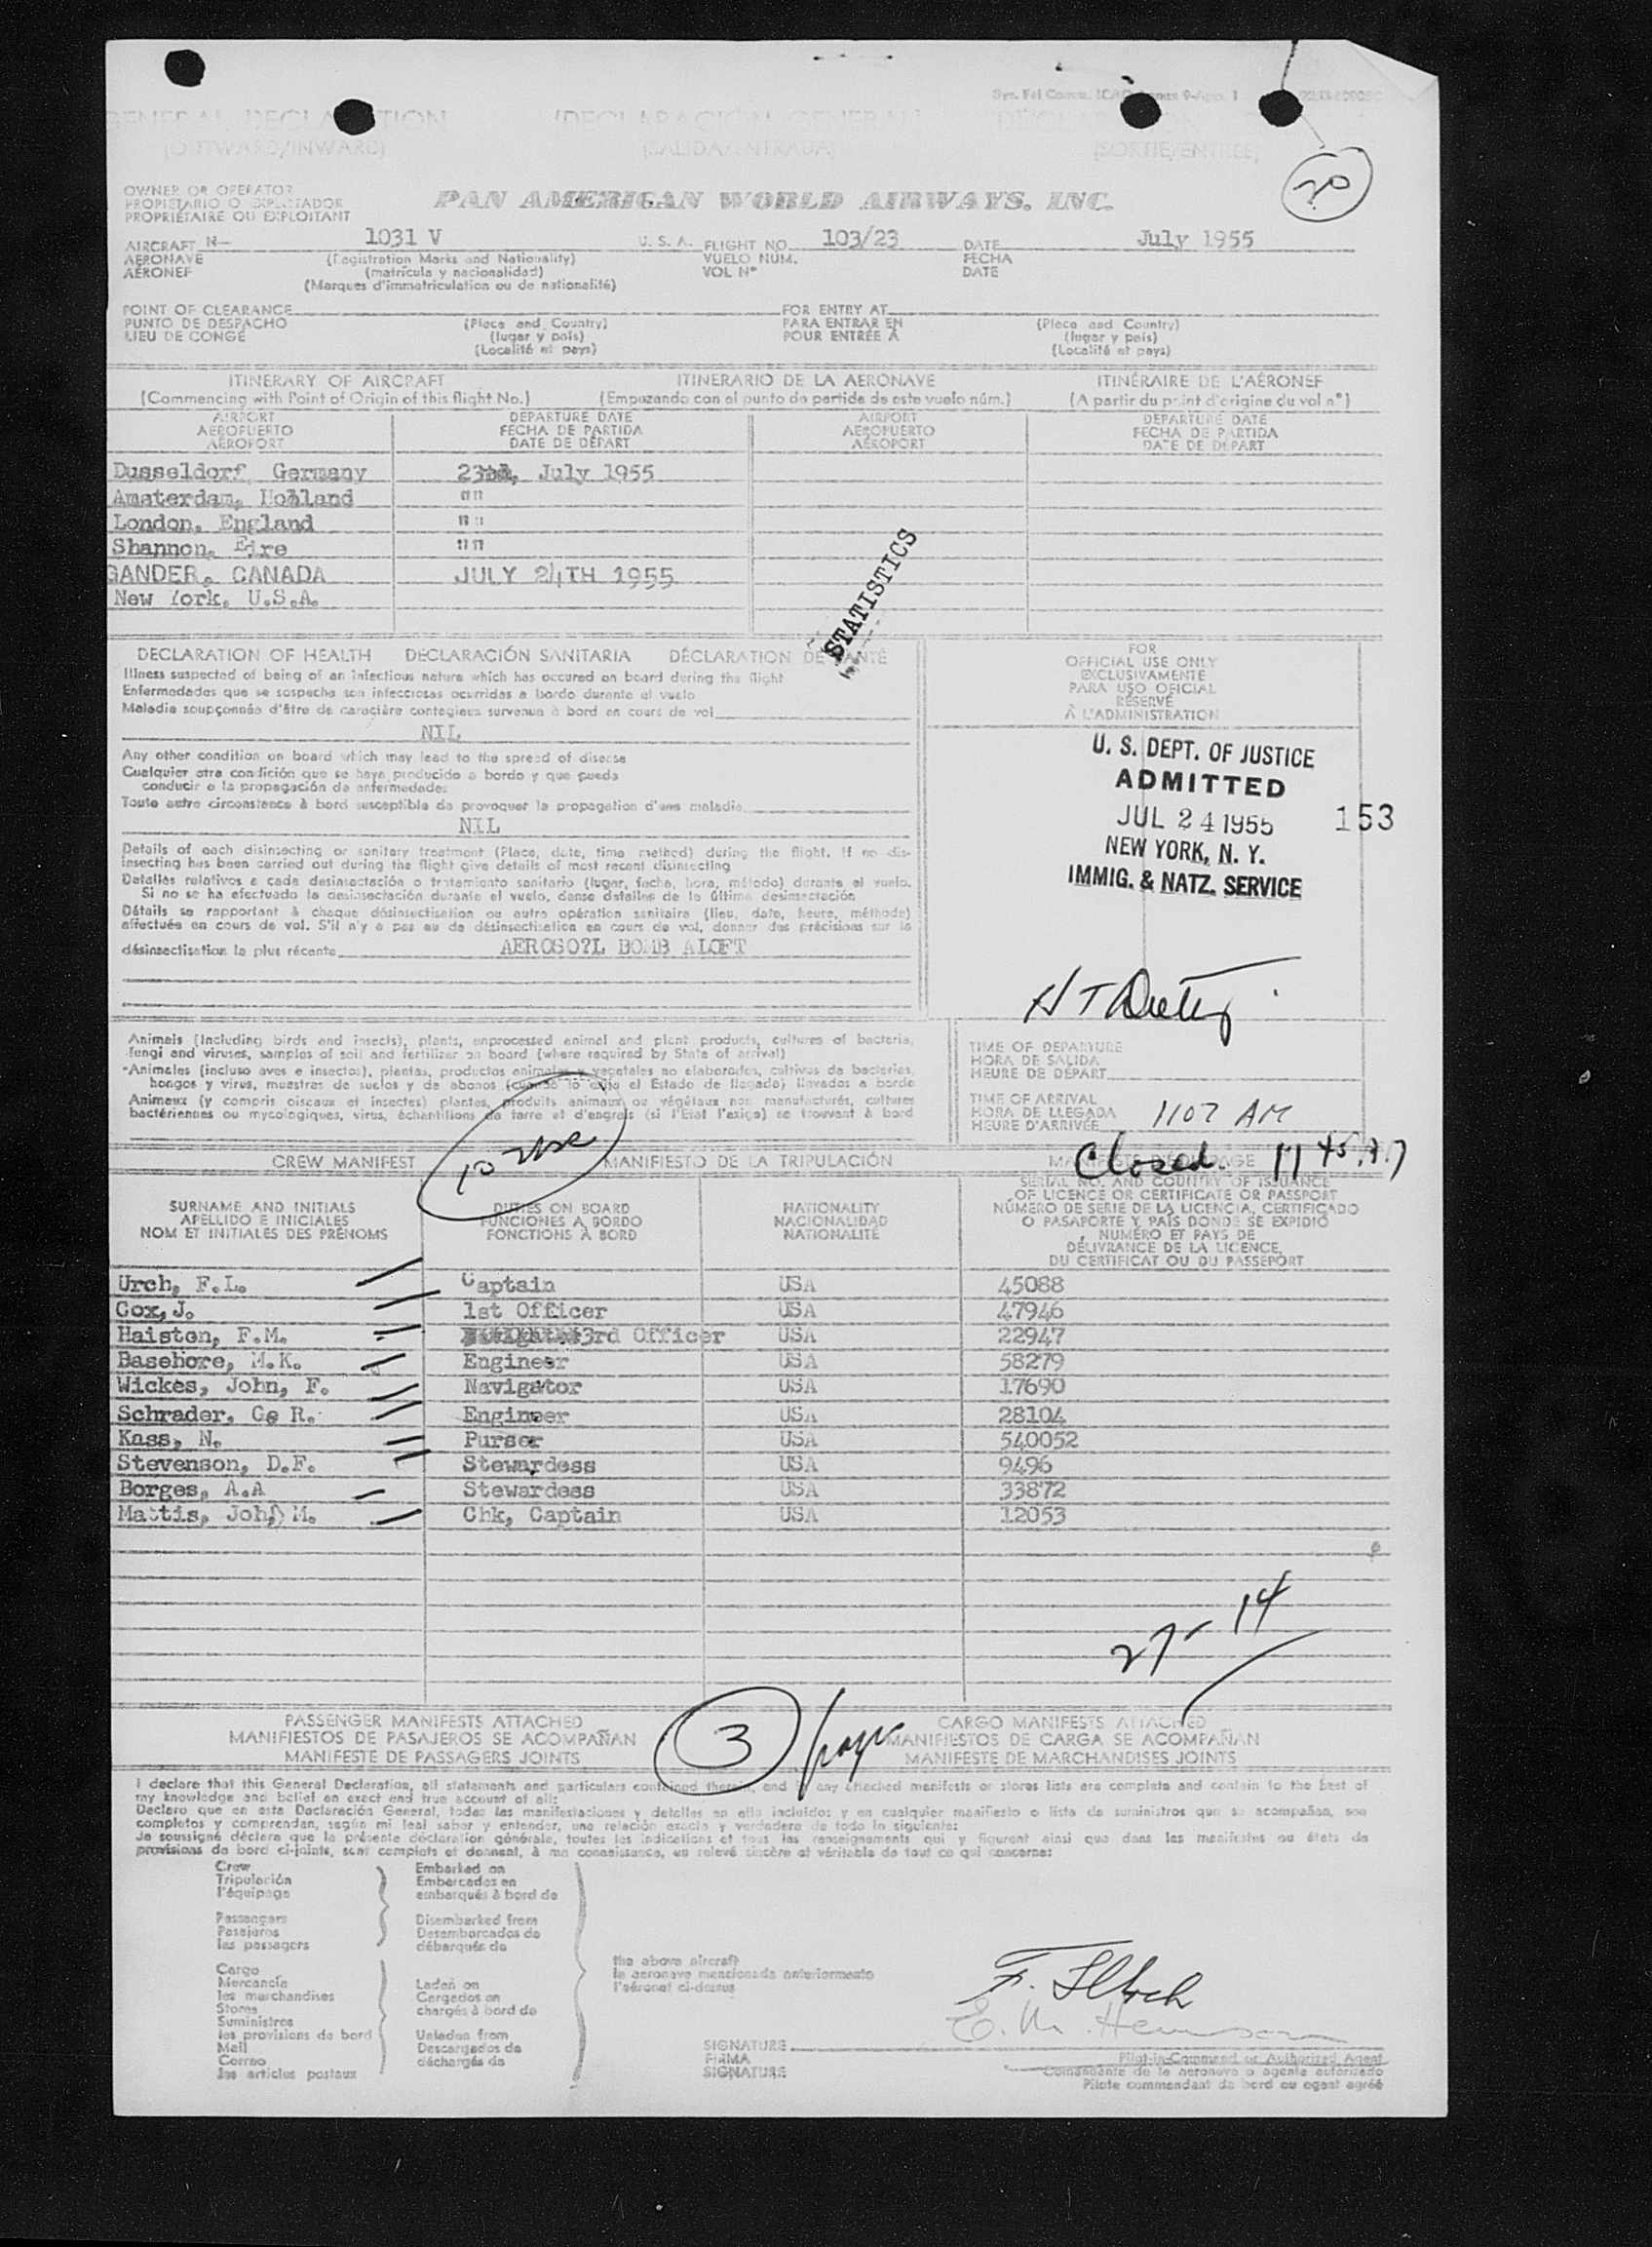 GENERAL DECLARATION (DECLARACIÓN GENERAL)
(OUTWARD/INWARD) (SALIDA/ENTRADA) (SORTIE/ENTREE)
20
OWNER OR OPERATOR
PROPIETARIO O EXPLOTADOR
PROPRIÉTAIRE OU EXPLOITANT
PAN AMERICAN WORLD AIRWAYS, INC.
AIRCRAFT N- 1031 V U. S. A. FLIGHT NO. 103/23 DATE July 1955
AERONAVE (Registration Marks and Nationality) VUELO NÚM. FECHA
AÉRONEF (matrícula y nacionalidad) VOL Nº DATE
(Marques d'immatriculation ou de nationalité)
POINT OF CLEARANCE FOR ENTRY AT
PUNTO DE DESPACHO (Place and Country) PARA ENTRAR EN (Place and Country)
LIEU DE CONGÉ (lugar y país) POUR ENTRÉE À (lugar y país)
(Localité et pays) (Localité et pays)
ITINERARY OF AIRCRAFT ITINERARIO DE LA AERONAVE ITINÉRAIRE DE L'AÉRONEF
(Commencing with Point of Origin of this flight No.) (Empezando con el punto de partida de este vuelo núm.) (A partir du point d'origine du vol nº)
AIRPORT DEPARTURE DATE AIRPORT DEPARTURE DATE
AEROPUERTO FECHA DE PARTIDA AEROPUERTO FECHA DE PARTIDA
AÉROPORT DATE DE DÉPART AÉROPORT DATE DE DÉPART
Dusseldorf, Germany 23rd, July 1955
Amsterdam, Holland " "
London, England " "
Shannon, Eire " "
GANDER, CANADA JULY 24TH 1955
New York, U.S.A.
STATISTICS
DECLARATION OF HEALTH DECLARACIÓN SANITARIA DÉCLARATION DE SANTÉ
Illness suspected of being of an infectious nature which has occured on board during the flight
Enfermedades que se sospecha son infecciosas ocurridas a bordo durante el vuelo
Maladie soupçonnée d'être de caractère contagieux survenue à bord en cours de vol
NIL
Any other condition on board which may lead to the spread of disease
Cualquier otra condición que se haya producido a bordo y que pueda
conducir a la propagación de enfermedades
Toute autre circonstance à bord susceptible de provoquer la propagation d'une maladie
NIL
Details of each disinsecting or sanitary treatment (Place, date, time method) during the flight. If no dis-
insecting has been carried out during the flight give details of most recent disinsecting
Detalles relativos a cada desinsectación o tratamiento sanitario (lugar, fecha, hora, método) durante el vuelo.
Si no se ha efectuado la desinsectación durante el vuelo, danse detalles de la última desinsectación
Détails se rapportant à chaque désinsectisation ou autre opération sanitaire (lieu, date, heure, méthode)
effectuée en cours de vol. S'il n'y a pas eu de désinsectisation en cours de vol, donner des précisions sur la
désinsectisation la plus récente AEROSO?L BOMB ALOFT
FOR
OFFICIAL USE ONLY
EXCLUSIVAMENTE
PARA USO OFICIAL
RÉSERVÉ
À L'ADMINISTRATION
U. S. DEPT. OF JUSTICE
ADMITTED
JUL 24 1955 153
NEW YORK, N. Y.
IMMIG. & NATZ. SERVICE
Animals (Including birds and insects), plants, unprocessed animal and plant products, cultures of bacteria,
fungi and viruses, samples of soil and fertilizer on board (where required by State of arrival)
Animales (incluso aves e insectos), plantas, productos animales y vegetales no elaborados, cultivos de bacterias,
hongos y virus, muestras de suelos y de abonos (cuando lo exija el Estado de llegada) llevados a bordo
Animaux (y compris oiseaux et insectes) plantes, produits animaux ou végétaux non manufacturés, cultures
bactériennes ou mycologiques, virus, échantillons de terre et d'engrais (si l'Etat l'exige) se trouvant à bord
TIME OF DEPARTURE
HORA DE SALIDA
HEURE DE DÉPART
TIME OF ARRIVAL
HORA DE LLEGADA
HEURE D'ARRIVÉE 1107 AM
Closed
CREW MANIFEST MANIFIESTO DE LA TRIPULACIÓN
10
SURNAME AND INITIALS
APELLIDO E INICIALES
NOM ET INITIALES DES PRÉNOMS
DUTIES ON BOARD
FUNCIONES A BORDO
FONCTIONS À BORD
NATIONALITY
NACIONALIDAD
NATIONALITÉ
SERIAL NO. AND COUNTRY OF ISSUANCE
OF LICENCE OR CERTIFICATE OR PASSPORT
NÚMERO DE SERIE DE LA LICENCIA, CERTIFICADO
O PASAPORTE Y PAÍS DONDE SE EXPIDIÓ
NUMÉRO ET PAYS DE
DÉLIVRANCE DE LA LICENCE,
DU CERTIFICAT OU DU PASSEPORT
Urch, F.L. Captain USA 45088
Cox, J. 1st Officer USA 47946
Haiston, F.M. 3rd Officer USA 22947
Basehore, M.K. Engineer USA 58279
Wickes, John, F. Navigator USA 17690
Schrader, G. R. Engineer USA 28104
Kass, N. Purser USA 540052
Stevenson, D.F. Stewardess USA 9496
Borges, A.A Stewardess USA 33872
Mattis, John M. Chk, Captain USA 12053
27 - 14
PASSENGER MANIFESTS ATTACHED CARGO MANIFESTS ATTACHED
MANIFIESTOS DE PASAJEROS SE ACOMPAÑAN 3 MANIFIESTOS DE CARGA SE ACOMPAÑAN
MANIFESTE DE PASSAGERS JOINTS MANIFESTE DE MARCHANDISES JOINTS
I declare that this General Declaration, all statements and particulars contained therein, and in any attached manifests or stores lists are complete and contain to the best of
my knowledge and belief an exact and true account of all:
Declaro que en esta Declaración General, todas las manifestaciones y detalles en ella incluidos y en cualquier manifiesto o lista de suministros que se acompañan, son
completos y comprenden, según mi leal saber y entender, una relación exacta y verdadera de todo lo siguiente:
Je soussigné déclare que la présente déclaration générale, toutes les indications et tous les renseignements qui y figurent ainsi que dans les manifestes ou états de
provisions de bord ci-joints, sont complets et donnent, à ma connaissance, un relevé sincère et véritable de tout ce qui concerne:
Crew
Tripulación
l'équipage
Passengers
Pasajeros
les passagers
Cargo
Mercancía
les marchandises
Stores
Suministros
les provisions de bord
Mail
Correo
les articles postaux
Embarked on
Embarcados en
embarqués à bord de
Disembarked from
Desembarcados de
débarqués de
Laden on
Cargados en
chargés à bord de
Unladen from
Descargados de
déchargés de
the above aircraft
la aeronave mencionada anteriormente
l'aéronef ci-dessus
F. L. Urch
SIGNATURE
FIRMA
SIGNATURE
Pilot-in-Command or Authorized Agent
Comandante de la aeronave o agente autorizado
Pilote commandant de bord ou agent agréé